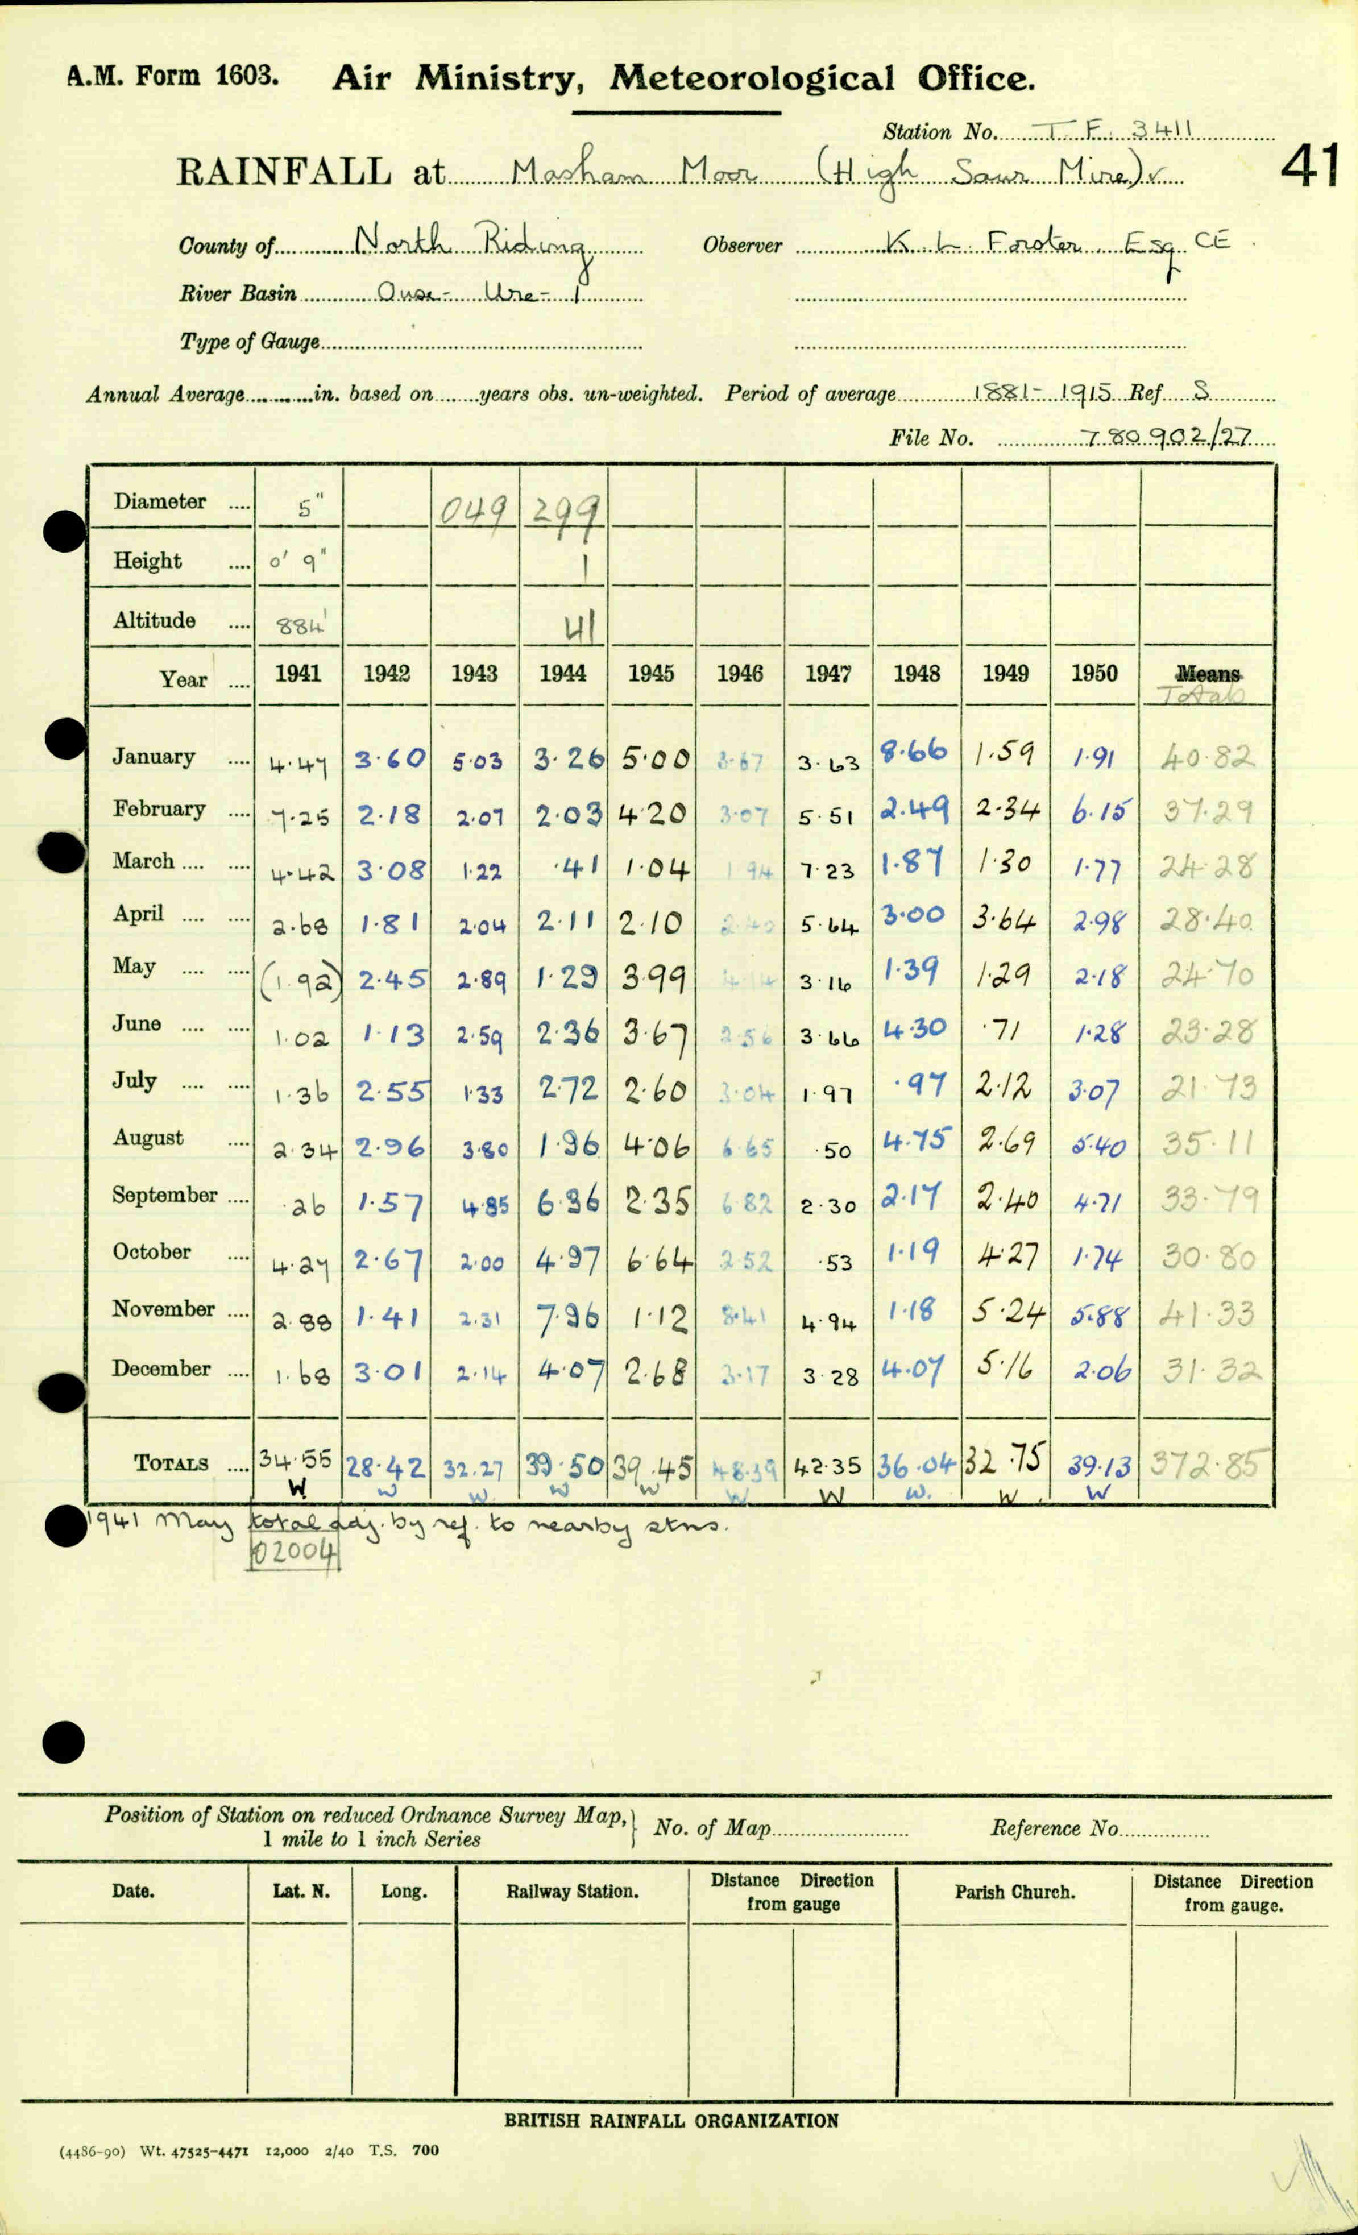 A.M. Form 1603. Air Ministry, Meteorological Office.
Station No. T.F. 3411
41
RAINFALL at Masham Moor (High Saur Mire) v
County of North Riding Observer K. L. Forster, Esq CE
River Basin Ouse - Ure - 1
Type of Gauge
Annual Average in. based on years obs. un-weighted. Period of average 1881-1915 Ref S
File No. 780902/27
Diameter 5" 049 299
Height 0' 9" 1
Altitude 884' 41
Year 1941 1942 1943 1944 1945 1946 1947 1948 1949 1950 Means
Totals
January 4.47 3.60 5.03 3.26 5.00 3.67 3.63 8.66 1.59 1.91 40.82
February 7.25 2.18 2.07 2.03 4.20 3.07 5.51 2.49 2.34 6.15 37.29
March 4.42 3.08 1.22 .41 1.04 1.94 7.23 1.87 1.30 1.77 24.28
April 2.68 1.81 2.04 2.11 2.10 2.40 5.64 3.00 3.64 2.98 28.40
May (1.92) 2.45 2.89 1.29 3.99 4.14 3.16 1.39 1.29 2.18 24.70
June 1.02 1.13 2.59 2.36 3.67 2.56 3.66 4.30 .71 1.28 23.28
July 1.36 2.55 1.33 2.72 2.60 3.04 1.97 .97 2.12 3.07 21.73
August 2.34 2.96 3.80 1.96 4.06 6.65 .50 4.75 2.69 5.40 35.11
September .26 1.57 4.85 6.36 2.35 6.82 2.30 2.17 2.40 4.71 33.79
October 4.27 2.67 2.00 4.97 6.64 2.52 .53 1.19 4.27 1.74 30.80
November 2.88 1.41 2.31 7.96 1.12 8.41 4.94 1.18 5.24 5.88 41.33
December 1.68 3.01 2.14 4.07 2.68 3.17 3.28 4.07 5.16 2.06 31.32
TOTALS 34.55 28.42 32.27 39.50 39.45 48.39 42.35 36.04 32.75 39.13 372.85
W W W W W W W W. W. W
1941 May total adj. by ref. to nearby stns.
02004
Position of Station on reduced Ordnance Survey Map, } No. of Map Reference No.
1 mile to 1 inch Series
Date. Lat. N. Long. Railway Station. Distance Direction from gauge Parish Church. Distance Direction from gauge.
BRITISH RAINFALL ORGANIZATION
(4486-90) Wt. 47525-4471 12,000 2/40 T.S. 700